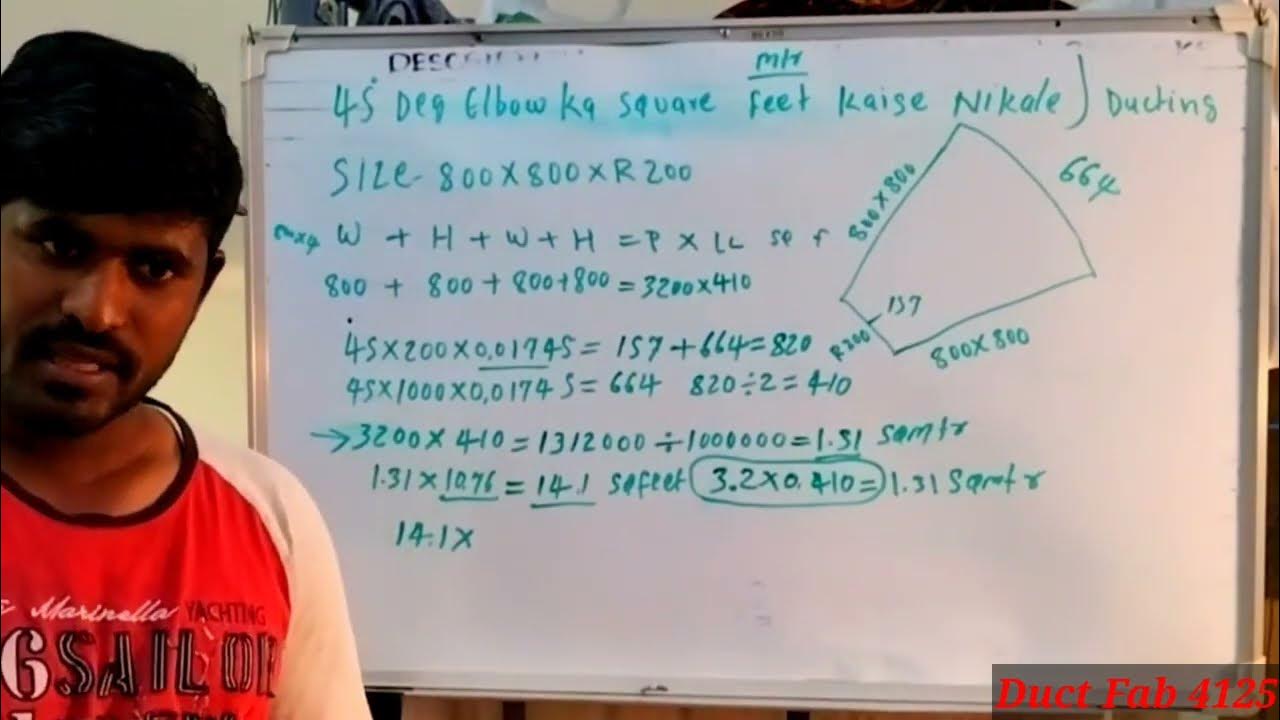 mtr
45° Deg Elbow ka square feet kaise Nikale) Ducting
SIZE- 800X800XR200
W + H + W + H = P X
800 + 800 + 800+800 = 3200x410
45X200X0,01745 = 157+664=820
45X1000X0,01745= 664 820÷2=410
→3200X410=1312000÷1000000=1.31 sqmtr
1.31X10.76 = 14.1 sqfeet 3.2X0.410= 1.31 Sqmtr
14.1X
800X800
664
157
R200
800X800
Marinella YACHTING
6 SAILOR
Duct Fab 4125